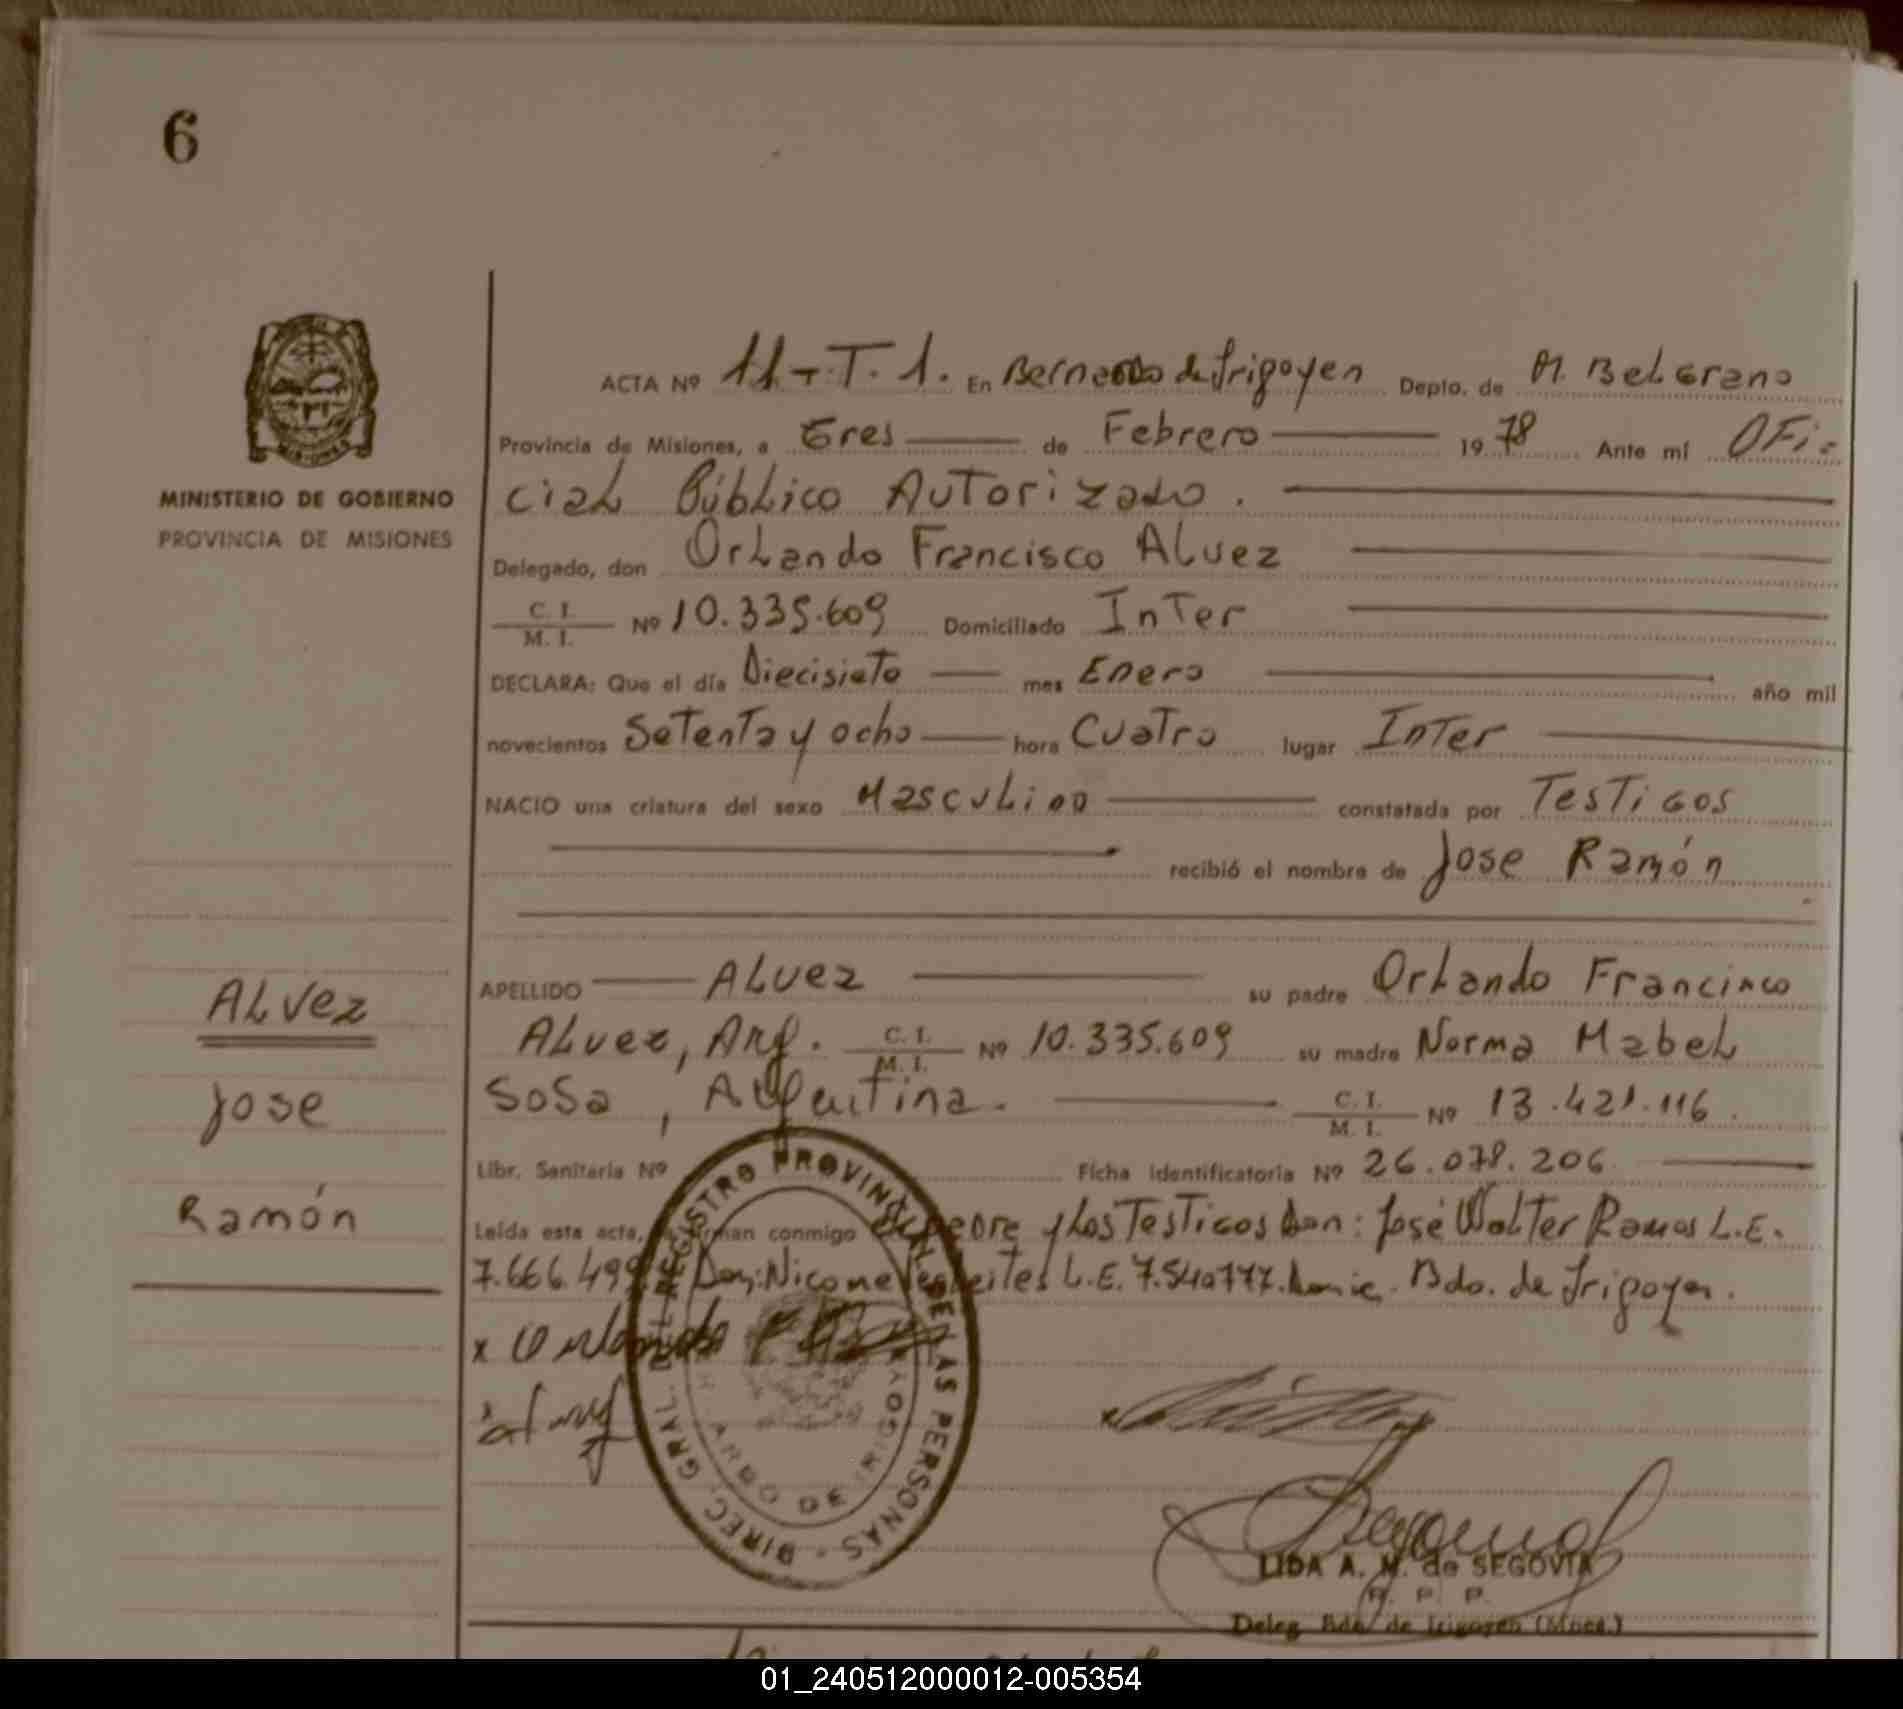 6
MINISTERIO DE GOBIERNO
PROVINCIA DE MISIONES
ACTA Nº 11-T.1. En Bernardo de Irigoyen Depto. de M. Belgrano
Provincia de Misiones, a Tres de Febrero 1978 Ante mí Ofi-
cial Público Autorizado.
Delegado, don Orlando Francisco Alvez
C. I.
M. I. Nº 10.335.609 Domiciliado Inter
DECLARA: Que el día Diecisiete mes Enero año mil
novecientos Setenta y ocho hora Cuatro lugar Inter
NACIO una criatura del sexo Masculino constatada por Testigos
recibió el nombre de Jose Ramón
APELLIDO Alvez su padre Orlando Francisco
Alvez, Arg. C. I. M. I. Nº 10.335.609 su madre Norma Mabel
Sosa, Argentina. C. I. M. I. Nº 13.421.116.
Libr. Sanitaria Nº Ficha Identificatoria Nº 26.078.206
Leída esta acta, firman conmigo el padre y los Testigos Don: José Walter Ramos L.E.
7.666.499 Don: Nicomedes L.E. 7.540777. Domic. Bdo. de Irigoyen.
x Orlando
ALVez
Jose
Ramón
DIREC. GRAL. DEL REGISTRO PROVINCIAL DE LAS PERSONAS
LIDA A. M. de SEGOVIA
R. P. P.
Deleg. Bdo. de Irigoyen (Mnes.)
01_240512000012-005354